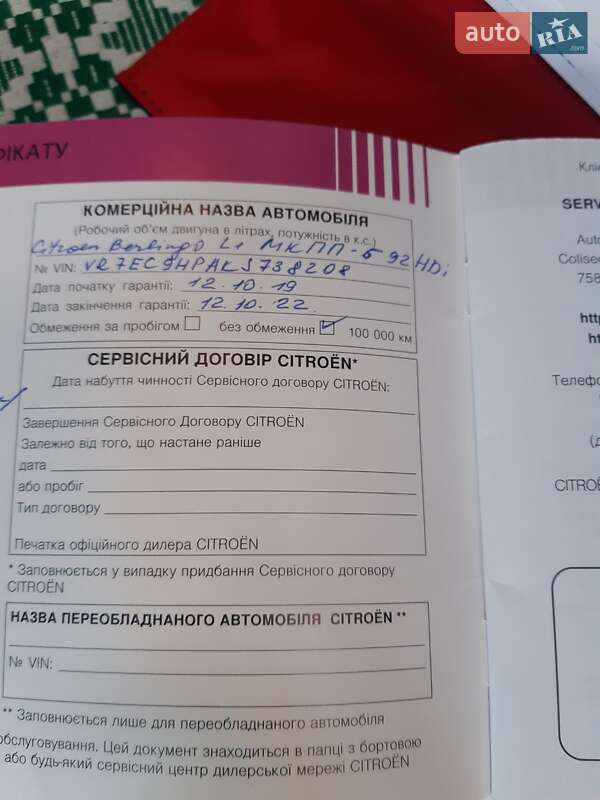 auto RIA
.com
ФІКАТУ
КОМЕРЦІЙНА НАЗВА АВТОМОБІЛЯ
(Робочий об'єм двигуна в літрах, потужність в к.с.)
Citroen Berlingo L1 МКПП-5 92 HDi
№ VIN: VR7EC9HPAKJ738208
Дата початку гарантії: 12.10.19
Дата закінчення гарантії: 12.10.22.
Обмеження за пробігом без обмеження 100 000 км
СЕРВІСНИЙ ДОГОВІР CITROËN*
Дата набуття чинності Сервісного договору CITROËN:
Завершення Сервісного Договору CITROËN
Залежно від того, що настане раніше
дата
або пробіг
Тип договору
Печатка офіційного дилера CITROËN
* Заповнюється у випадку придбання Сервісного договору
CITROËN
НАЗВА ПЕРЕОБЛАДНАНОГО АВТОМОБІЛЯ CITROËN **
№ VIN:
** Заповнюється лише для переобладнаного автомобіля
обслуговування. Цей документ знаходиться в папці з бортовою
або будь-який сервісний центр дилерської мережі CITROËN
Кліє
SERV
Auto
Colise
758
http
ht
Телефо
(д
CITROË